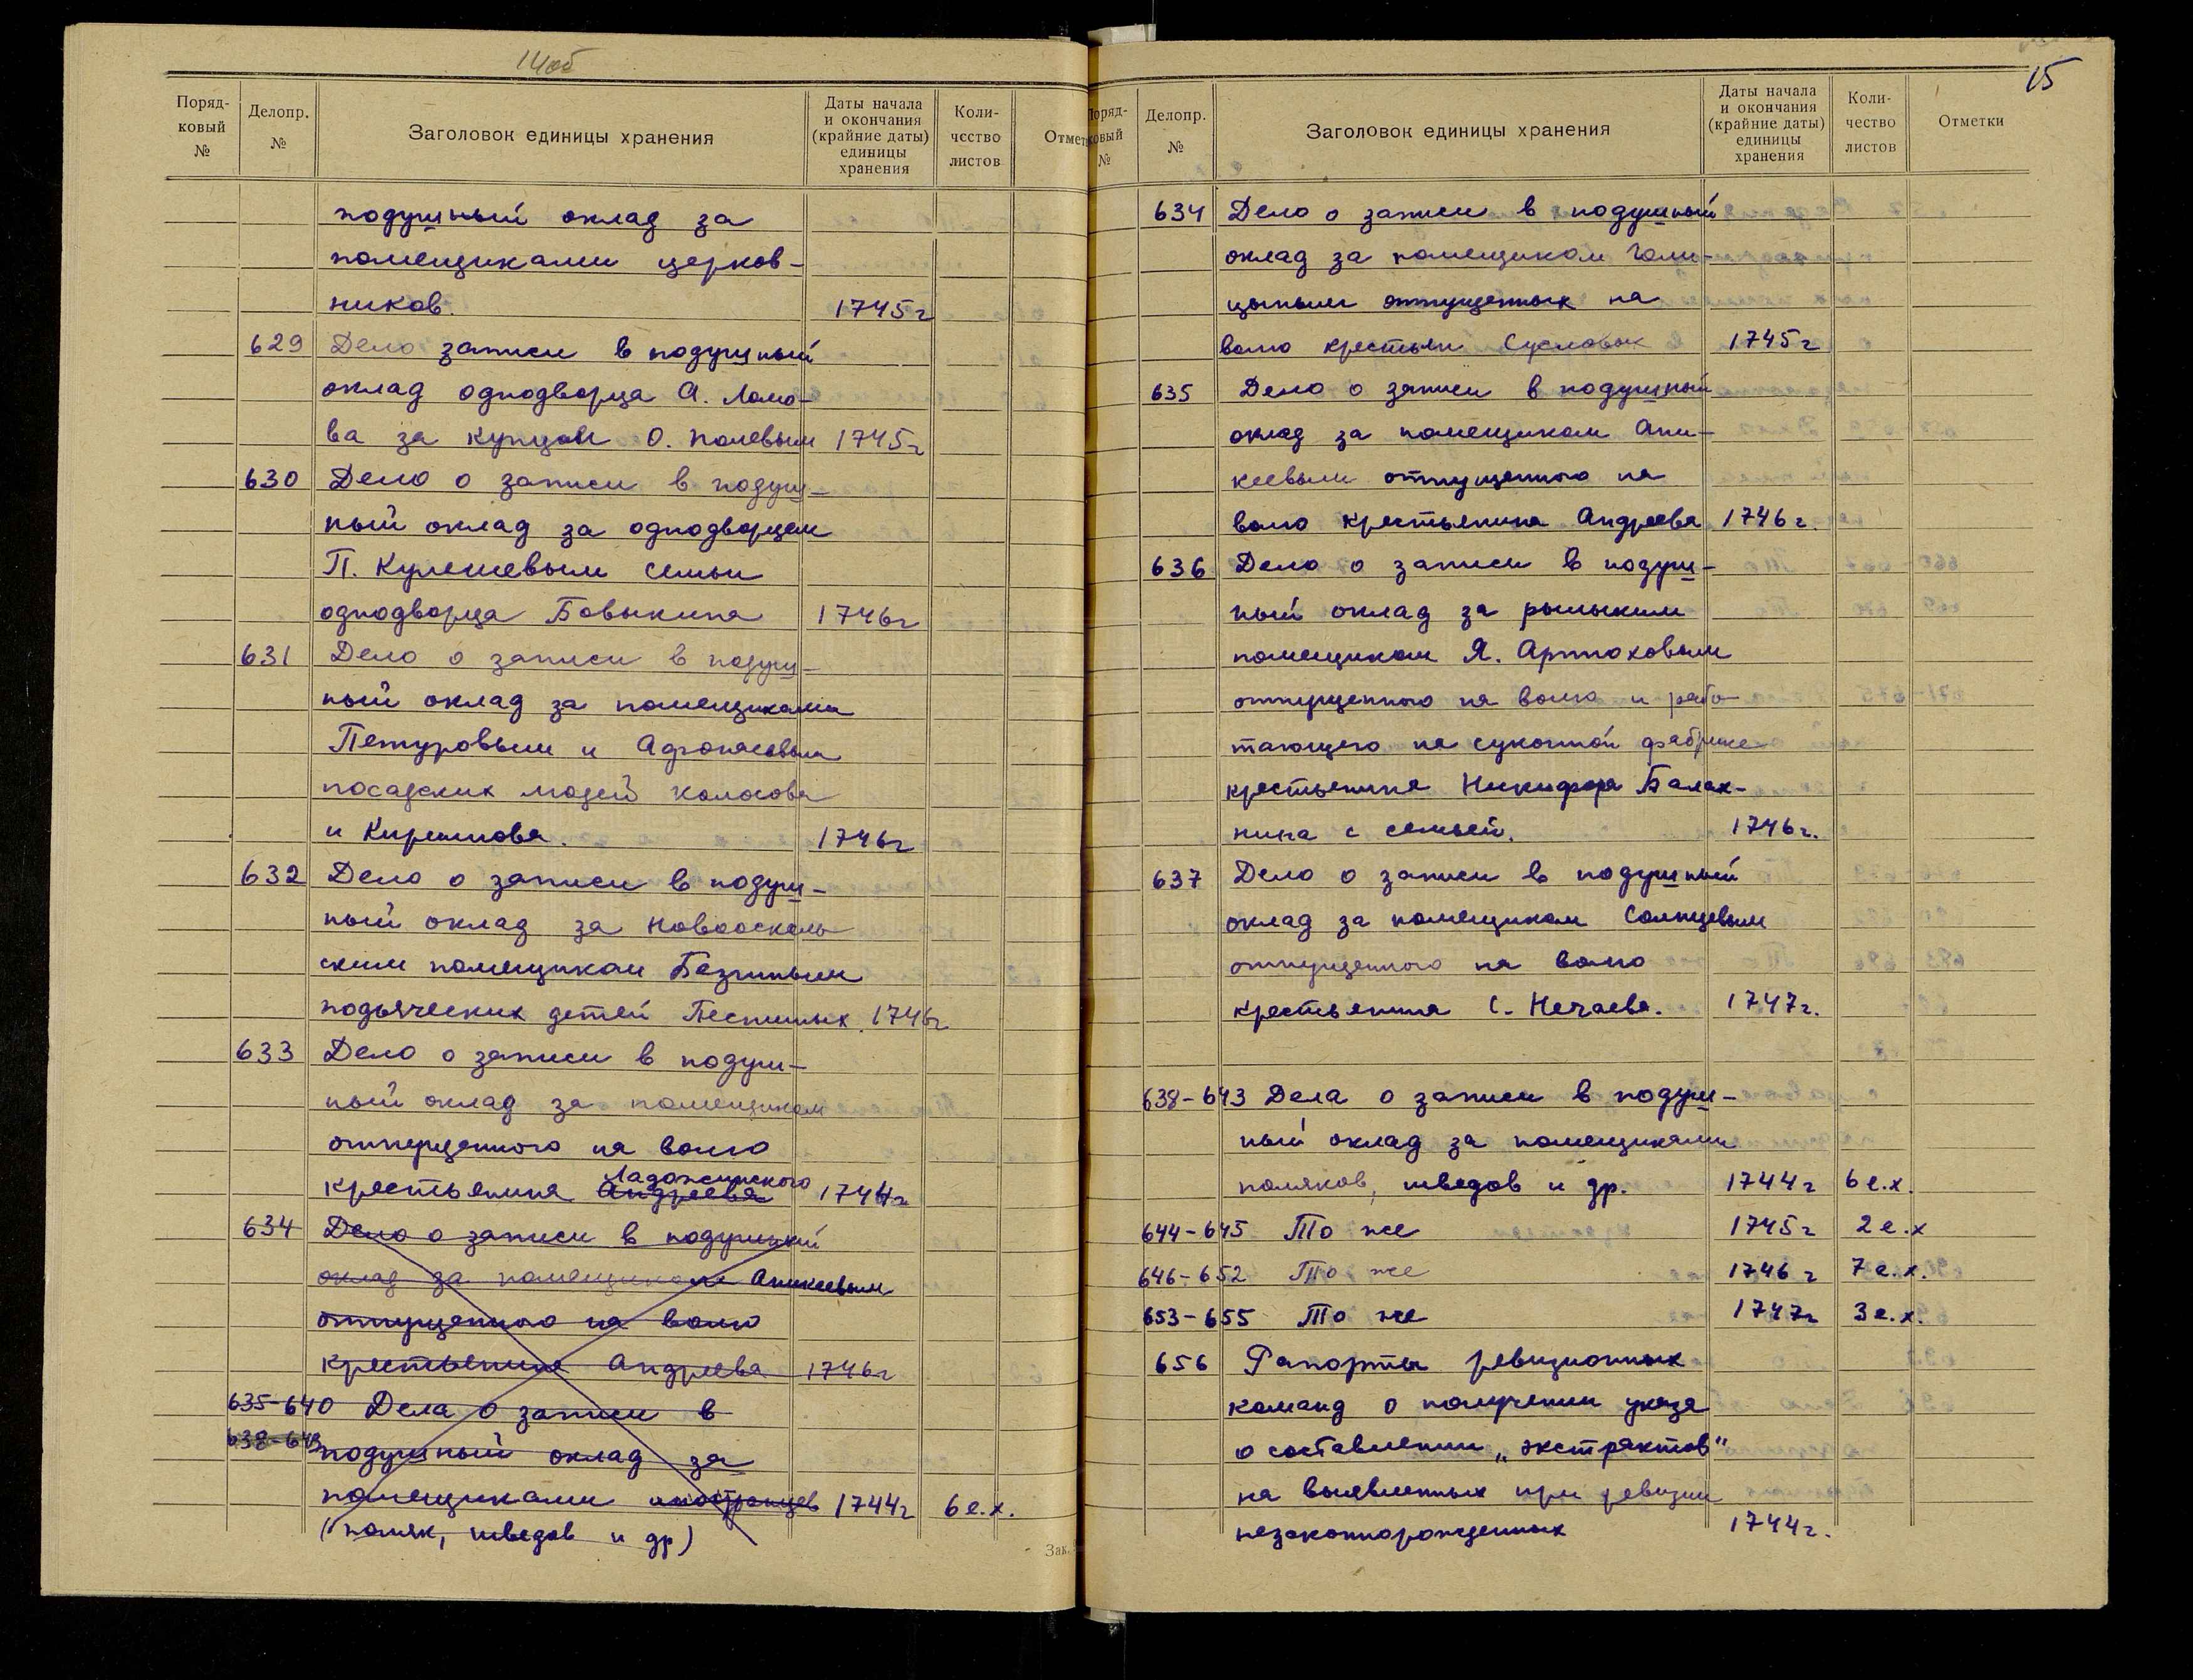 14об
Поряд-
ковый
№
Делопр.
№
Заголовок единицы хранения
Даты начала
и окончания
(крайние даты)
единицы
хранения
Коли-
чество
листов
Отмет
подушный оклад за
помещиками церков-
ников. 1745г
629 Дело записи в подушный
оклад однодворца А. Ломо-
ва за купцом О. Полевым 1745г
630 Дело о записи в подуш-
ный оклад за однодворцем
П. Кулешевым семьи
однодворца Бовыкина 1746г
631 Дело о записи в подуш-
ный оклад за помещиками
Петуровым и Афонасовым
посадских людей Колосова
и Кирешнова. 1746г
632 Дело о записи в подуш-
ный оклад за новооскаль
ским помещиком Безгиным
подьяческих детей Песчиных. 1746г
633 Дело о записи в подуш-
ный оклад за помещиком
отпущенного на волю
Ладожинского
крестьянина Андреева 1744г
634 Дело о записи в подушный
оклад за помещиком Аникеевым
отпущенного на волю
крестьянина Андреева 1746г
635-640 Дела о записи в
638-643 подушный оклад за
помещиками иностранцев 1744г 6 е.х.
(поляк, шведов и др)
Зак.
15
Поряд-
ковый
№
Делопр.
№
Заголовок единицы хранения
Даты начала
и окончания
(крайние даты)
единицы
хранения
Коли-
чество
листов
Отметки
634 Дело о записи в подушный
оклад за помещиком Голи-
цыным отпущенных на
волю крестьян Сусловых 1745г
635 Дело о записи в подушный
оклад за помещиком Ани-
кеевым отпущенного на
волю крестьянина Андреева 1746г.
636 Дело о записи в подуш-
ный оклад за рыльским
помещиком Я. Артюховым
отпущенного на волю и рабо-
тающего на суконной фабрике
крестьянина Никифора Балах-
нина с семьей. 1746г.
637 Дело о записи в подушный
оклад за помещиком Солнцевым
отпущенного на волю
крестьянина С. Нечаева. 1747г.
638-643 Дела о записи в подуш-
ный оклад за помещиками
поляков, шведов и др. 1744г 6 е.х.
644-645 То же 1745г 2 е.х
646-652 То же 1746г 7 е.х.
653-655 То же 1747г 3 е.х.
656 Рапорты ревизионных
команд о получении указа
о составлении „экстрактов"
на выявленных при ревизии
незаконнорожденных 1744г.